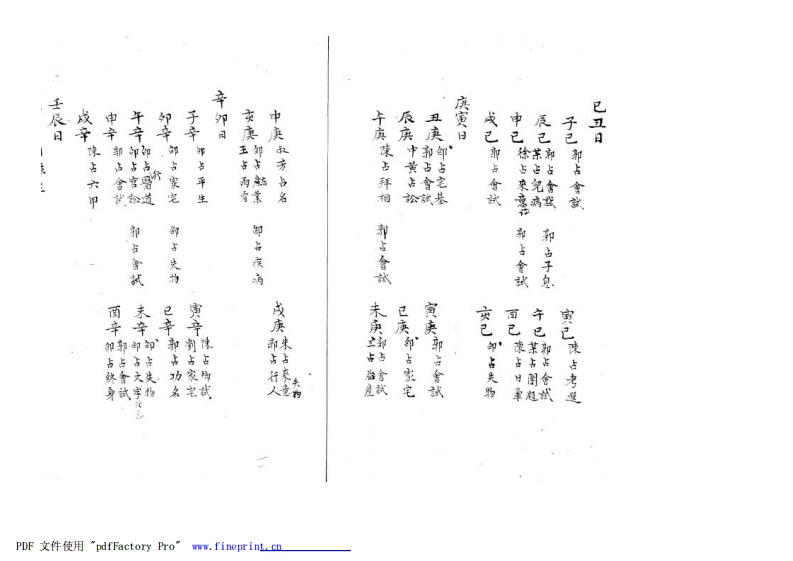 己丑日
子己 郭占會試
寅己 陳占考選
辰己 郭占會試 郭占子息
葉占兒病
午己 郭占會試
葉占闈題
申己
徐占來意 郭占會試
酉己 陳占日暈
戌己 郭占會試
亥己 邵占失物
庚寅日
丑庚 邵占宅基
郭占會試
寅庚 郭占會試
辰庚 中黃占訟
巳庚 邵占家宅
午庚 陳占拜相 郭占會試
未庚 郭占會試
王占治產
申庚 叔芳占名
戌庚 朱占來意 失物
郭占行人
亥庚 邵占館業 邵占疾病
王占雨雪
辛卯日
子辛 邵占平生
寅辛 陳占鄉試
劉占家宅
卯辛 邵占家宅 邵占失物
巳辛 郭占功名
午辛 邵占醫道行
邵占官訟 郭占會試
未辛 邵占失物
邵占文字
申辛 郭占會試
酉辛 郭占會試
邵占終身
戌辛 陳占六甲
壬辰日
一
PDF 文件使用 "pdfFactory Pro" www.fineprint.cn